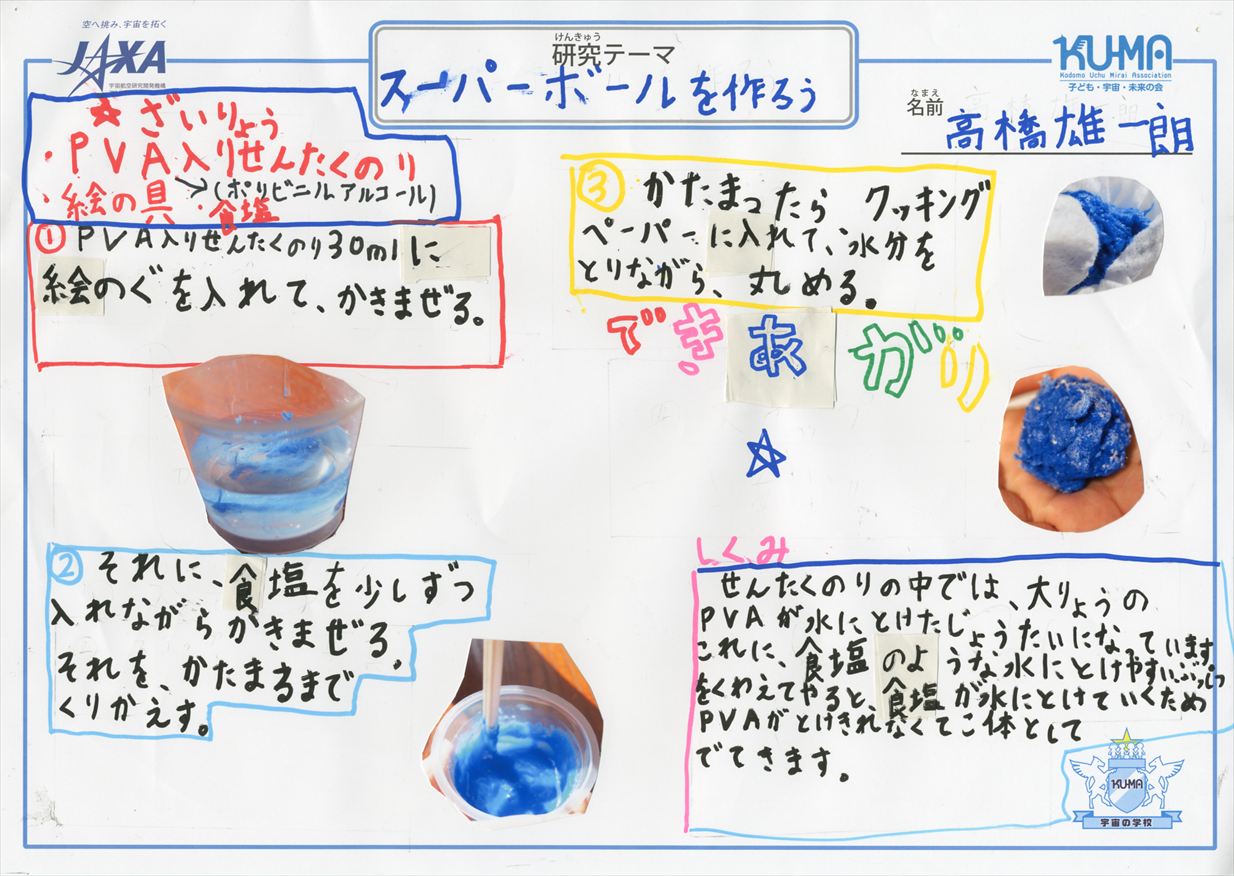 空へ挑み、宇宙を拓く
JAXA
宇宙航空研究開発機構
けんきゅう
研究テーマ
スーパーボールを作ろう
KU-MA
Kodomo Uchu Mirai Association
子ども・宇宙・未来の会
なまえ
名前
高橋雄一朗
★ざいりょう
・PVA入りせんたくのり
→(ポリビニルアルコール)
・絵の具 ・食塩
① PVA入りせんたくのり30mlに
絵のぐを入れて、かきまぜる。
② それに、食塩を少しずつ
入れながらかきまぜる。
それを、かたまるまで
くりかえす。
③ かたまったら クッキング
ペーパーに入れて、水分を
とりながら、丸める。
できあがり
しくみ
せんたくのりの中では、大りょうの
PVAが水にとけたじょうたいになっています。
これに、食塩のような水にとけやすいぶっしつ
をくわえてやると、食塩が水にとけていくため
PVAがとけきれなくてこ体として
でてきます。
KUMA
宇宙の学校